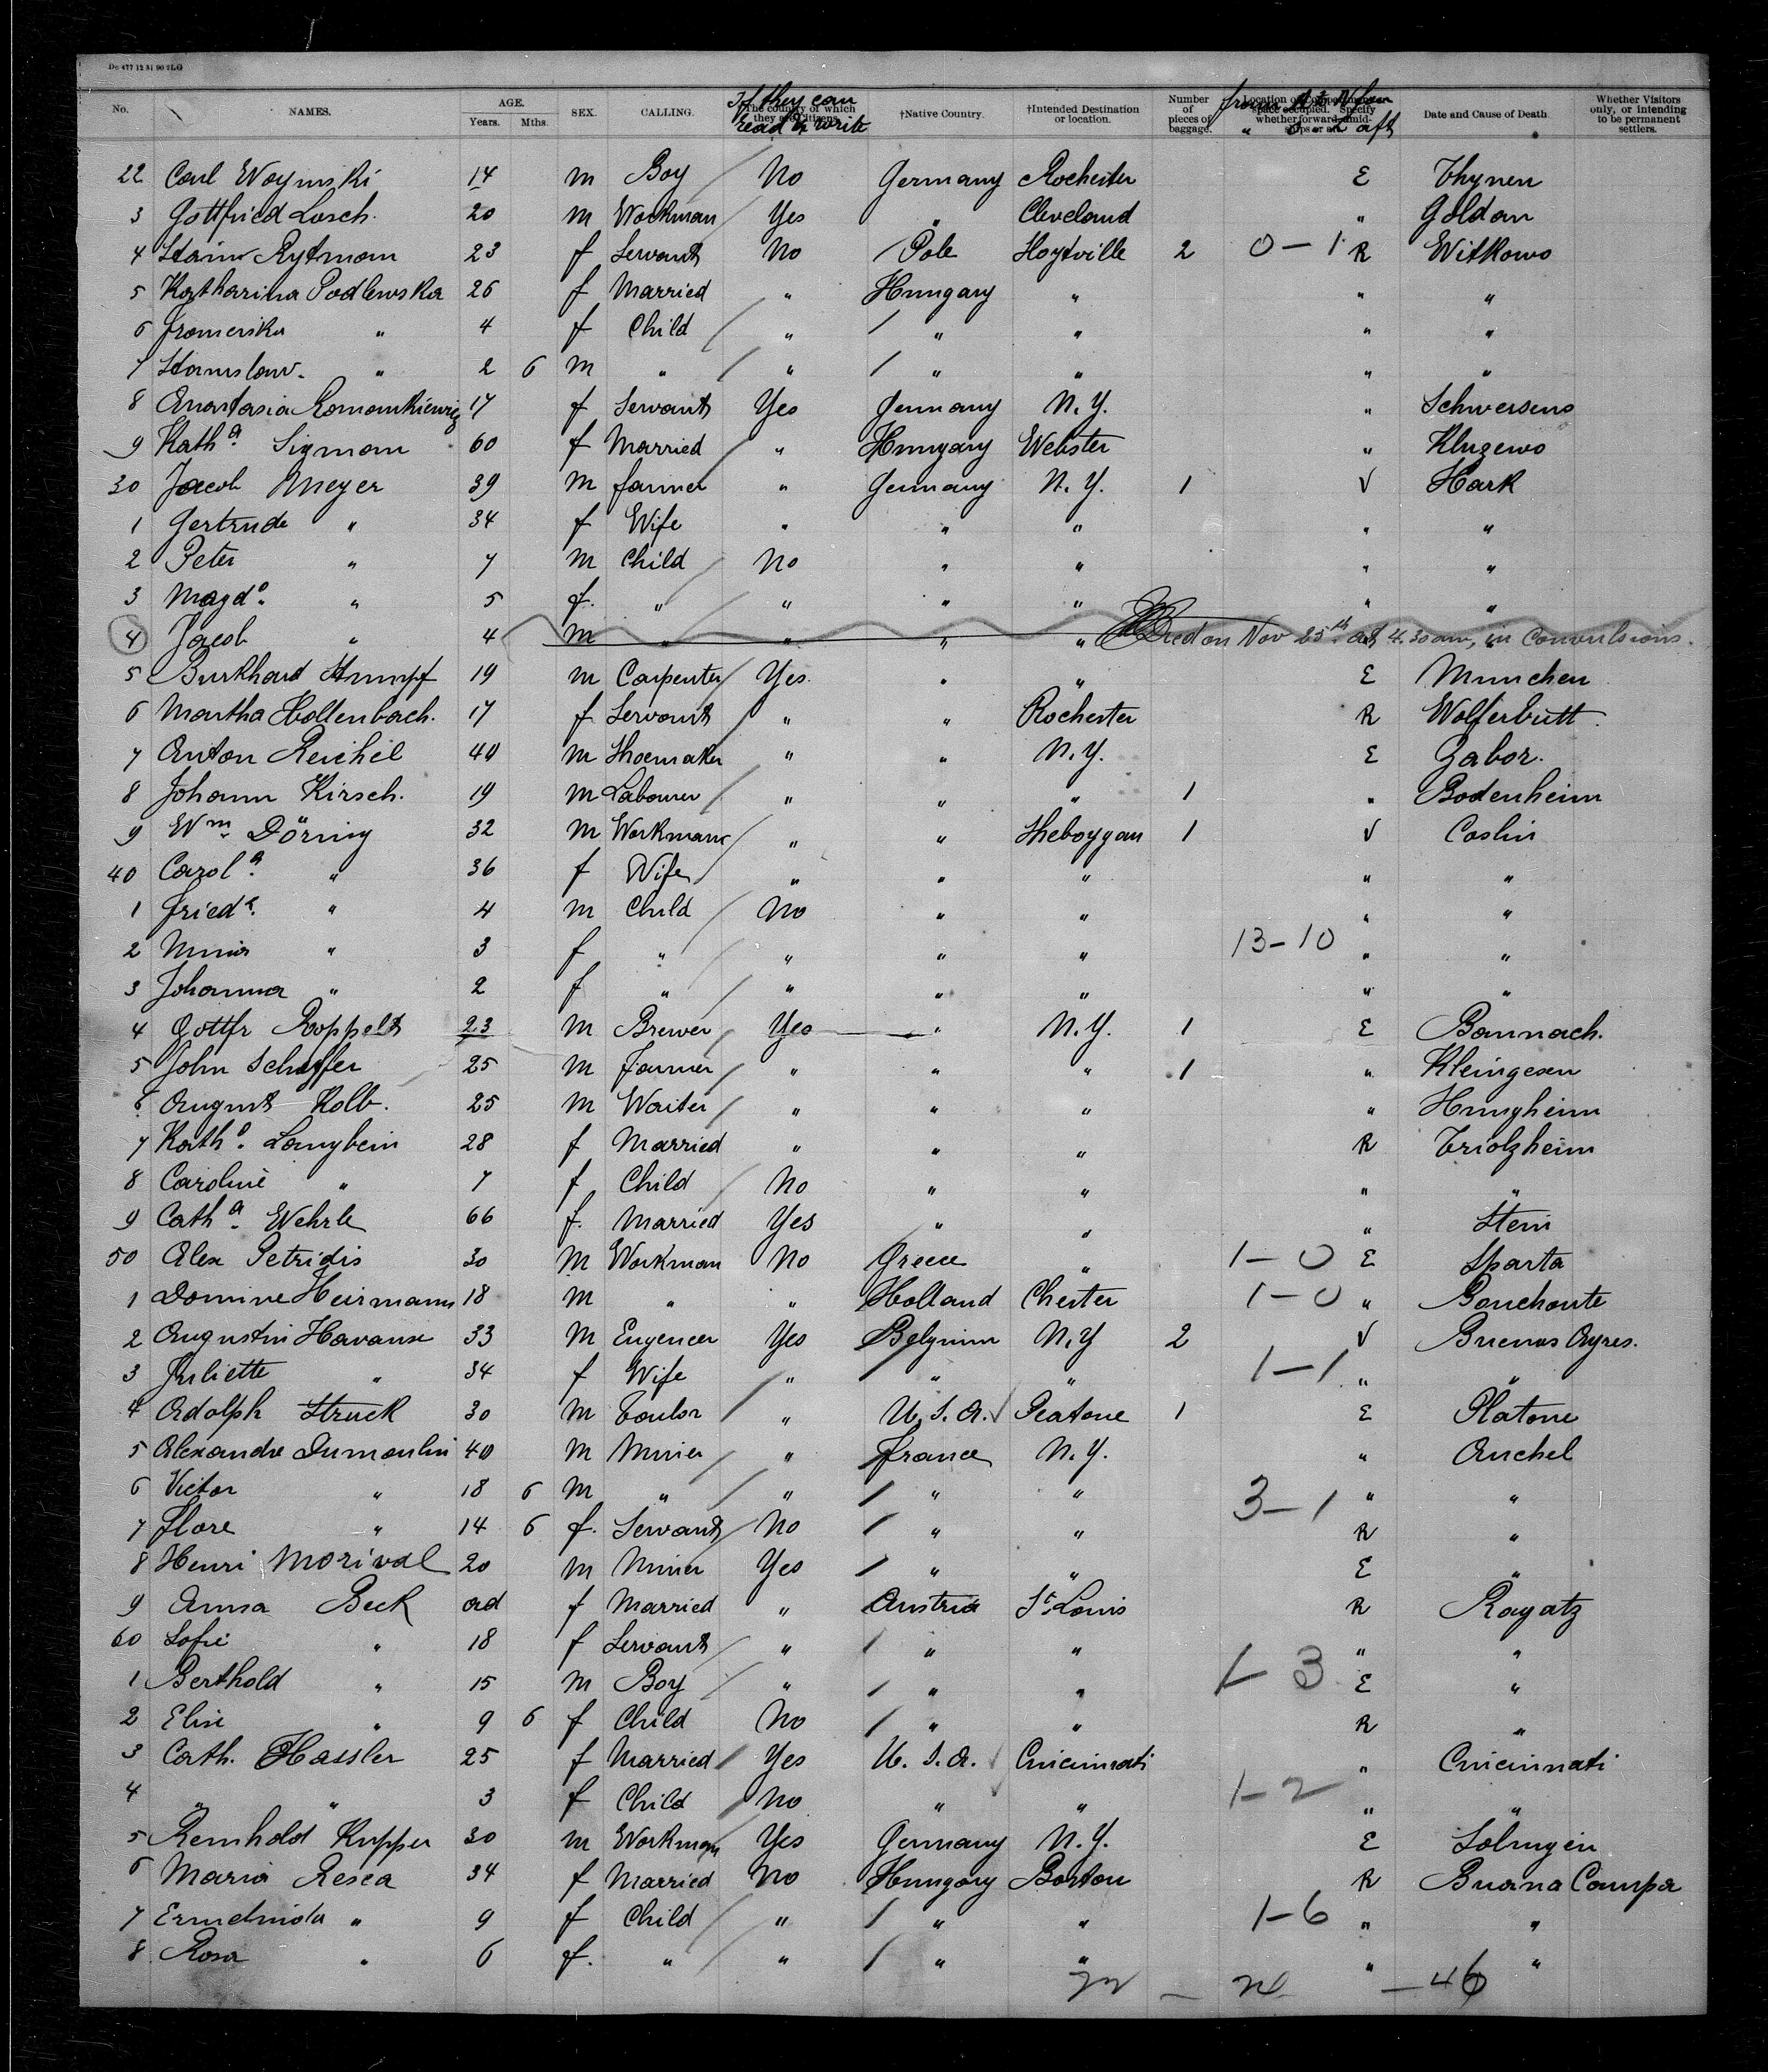 De 477 12 31 90 2LG
No. NAMES. AGE. Years. Mths. SEX. CALLING. The country of which they are Citizens. If they can read & write †Native Country. †Intended Destination or location. Number of pieces of baggage. Location of compartment or space occupied. Specify whether forward, amidships or aft. Date and Cause of Death. Whether Visitors only, or intending to be permanent settlers.
22 Carl Woyinski 14 m Boy No Germany Rochester E Thynen
3 Gottfried Losch. 20 m Workman Yes " Cleveland " Goldan
4 Rytman 23 f Servant No Pole Hoytville 2 0-1 R Witkowo
5 Katharina Podlewska 26 f Married " Hungary " " "
6 " 4 f Child " " " " "
7 Stanislaw. " 2 6 m " " " " " "
8 Anastasia Romankiewicz 17 f Servant Yes Germany N.Y. " Schwersens
9 Katha. Sigman 60 f Married " Hungary Webster " Kluzewo
30 Jacob Meyer 39 m farmer " Germany N.Y. 1 V Hark
1 Gertrude " 34 f Wife " " " " "
2 Peter " 7 m Child No " " " "
3 Magda. " 5 f. " " " " " "
4 Jacob " 4 m " " " " Died on Nov 25th at 4.30 am, in Convulsions.
5 Burkhard Stumpf 19 m Carpenter Yes. " " E Munchen
6 Martha Hollenbach. 17 f Servant " " Rochester R Wolferbutt.
7 Anton Reichel 40 m Shoemaker " " N.Y. E Zabor.
8 Johann Kirsch. 19 m Labourer " " " 1 " Bodenheim
9 Wm Döring 32 m Workman " " Sheboygan 1 V Coslin
40 Carola. " 36 f Wife " " " " "
1 Friedk. " 4 m Child No " " " "
2 Minna " 3 f " " " " 13-10 " "
3 Johanna " 2 f " " " " " "
4 Gottfr Roppelt 23 m Brewer Yes " N.Y. 1 E Baunach.
5 John Schaffer 25 m Farmer " " " 1 " Kleingesen
6 August Kolb. 25 m Waiter " " " " Hungheim
7 Katha. Langbein 28 f Married " " " R Triolzheim
8 Caroline " 7 f Child No " " " "
9 Catha. Wehrle 66 f. Married Yes " " " Stein
50 Alex Petridis 30 m Workman No Greece " 1-0 E Sparta
1 Domine Heirmann 18 m " " Holland Chester 1-0 " Bouchoute
2 Augustin Havaux 33 m Engeneer Yes Belgium N.Y 2 V Buenos Ayres.
3 Juliette " 34 f Wife " " " 1-1 " "
4 Adolph Struck 30 m " U.S.A. Peatone 1 E Platone
5 Alexandre Dumoulin 40 m Miner " France N.Y. " Auchel
6 Victor " 18 6 m " " " " 3-1 " "
7 Flore " 14 6 f. Servant No " " R "
8 Henri Morival 20 m Miner Yes " " E "
9 Anna Beck ad f Married " Austria St. Louis R Ragatz
60 Sofie " 18 f Servant " " " " "
1 Berthold " 15 m Boy " " " 1-3 E "
2 Elise " 9 6 f Child No " " R "
3 Cath. Hassler 25 f Married Yes U.S.A. Cincinnati " Cincinnati
4 " " 3 f Child No " " 1-2 " "
5 Reinhold Kupper 30 m Workman Yes Germany N.Y. E Solingen
6 Maria Resca 34 f Married No Hungary Boston R Buana Campa
7 " 9 f Child " " " 1-6 " "
8 Rosa " 6 f. " " " " " "
— 46